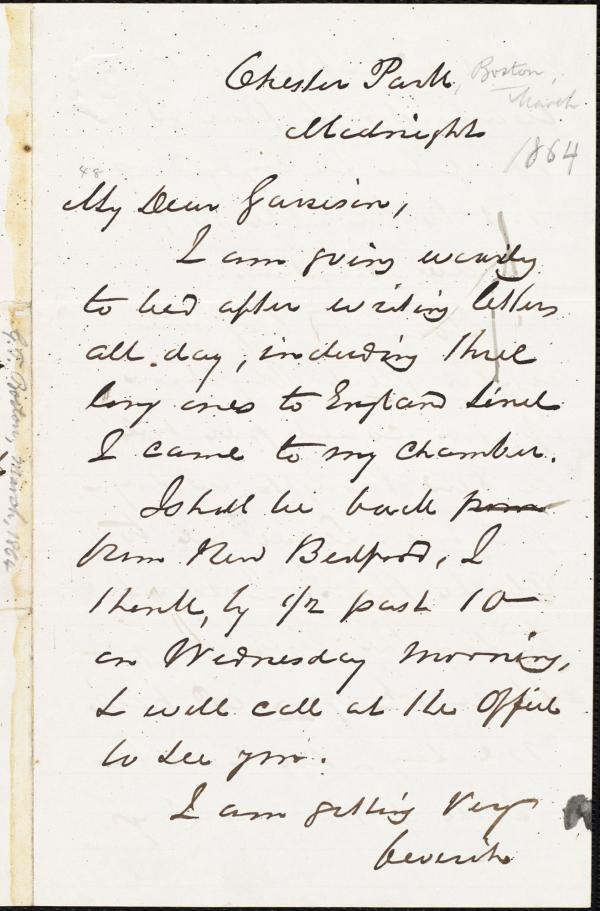 Chester Park, Boston,
March
Midnight
1864
48
My Dear Garrison,
I am going wearily
to bed after writing letters
all day, including three
long ones to England since
I came to my chamber.
I shall be back from
from New Bedford, I
think, by 1/2 past 10
on Wednesday morning,
& will call at the Office
to see you.
I am getting very
G.T. Boston, March, 1864